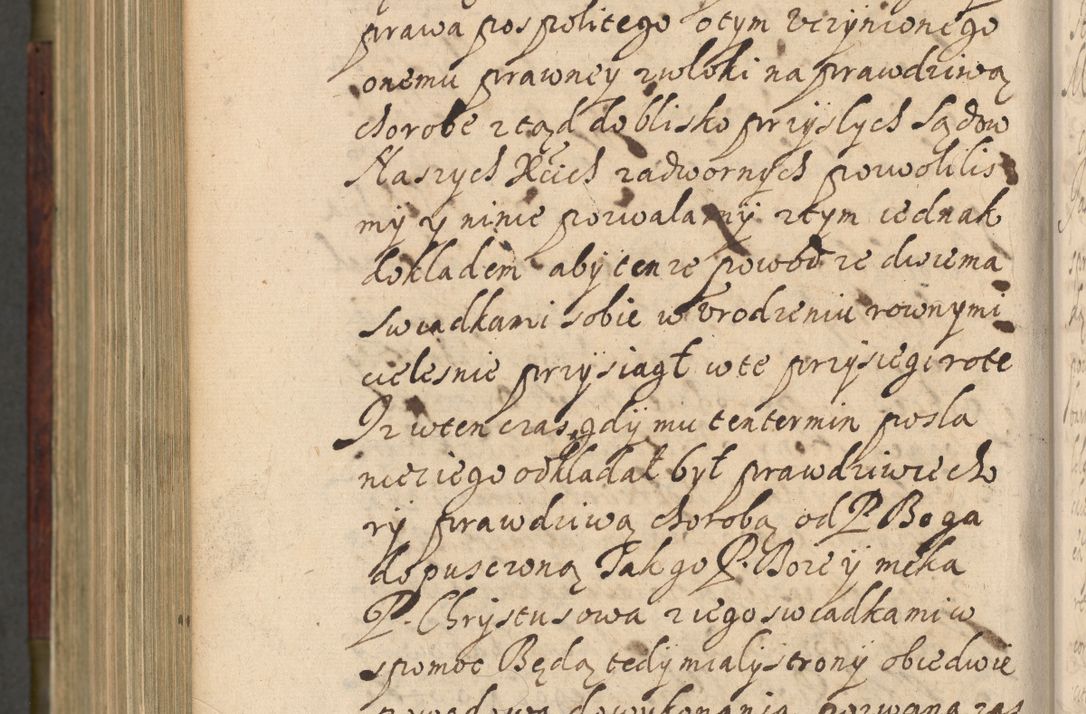 prawa pospolitego otym vczynionego
onemu prawney zwloki na prawdziwą
chorobe ztąd do blisko przyslych Sądow
Naszych Xcich zadwornych powolilis
my y ninie pozwalamy ztym iednak
dokladem aby tenze powod ze dwiema
swiadkami sobie w vrodzeniu rownymi
cielesnie przysiagł wte przysiegi rote
Iz wten czas gdy mu ten termin posla
niec iego odkladał był prawdziwie cho
ry prawdziwą chorobą od P. Boga
dopusczoną Tak go P. Boze y meka
P. Chrystusowa z iego swiadkami w
spomoc Będą tedy mialy strony obiedwie
do wykonania pozwana zas